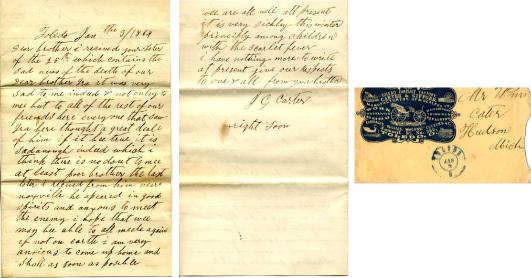 Toledo Jan the 3/1864
Dear brother i recived your leter
of the 25th which contains the
sad news of the death of our
dear brother Ira it was very
sad to me indeed & not only to
mee but to all of the rest of our
friends here every one that saw
Ira here thought a great deale
of him if it bee true it is
sad anough indeed which i
think there is no dout to mee
at least poor brother the last
leter i recived from him near
noxville he apeared in good
spirits and anxous to meet
the enemy i hope that wee
may bee able to all meete again
if not on earth i am very
anxious to come up home and
Shall as soon as posible
wee are all well all present
it is very sickley this winter
principly among children
with the scarlet fever
i have nothing more to write
at present give our respects
to one & all from your brother
J G Carter
wright Soon
Mr Wm
Cater
Hudson
Mich
TOLEDO
JAN